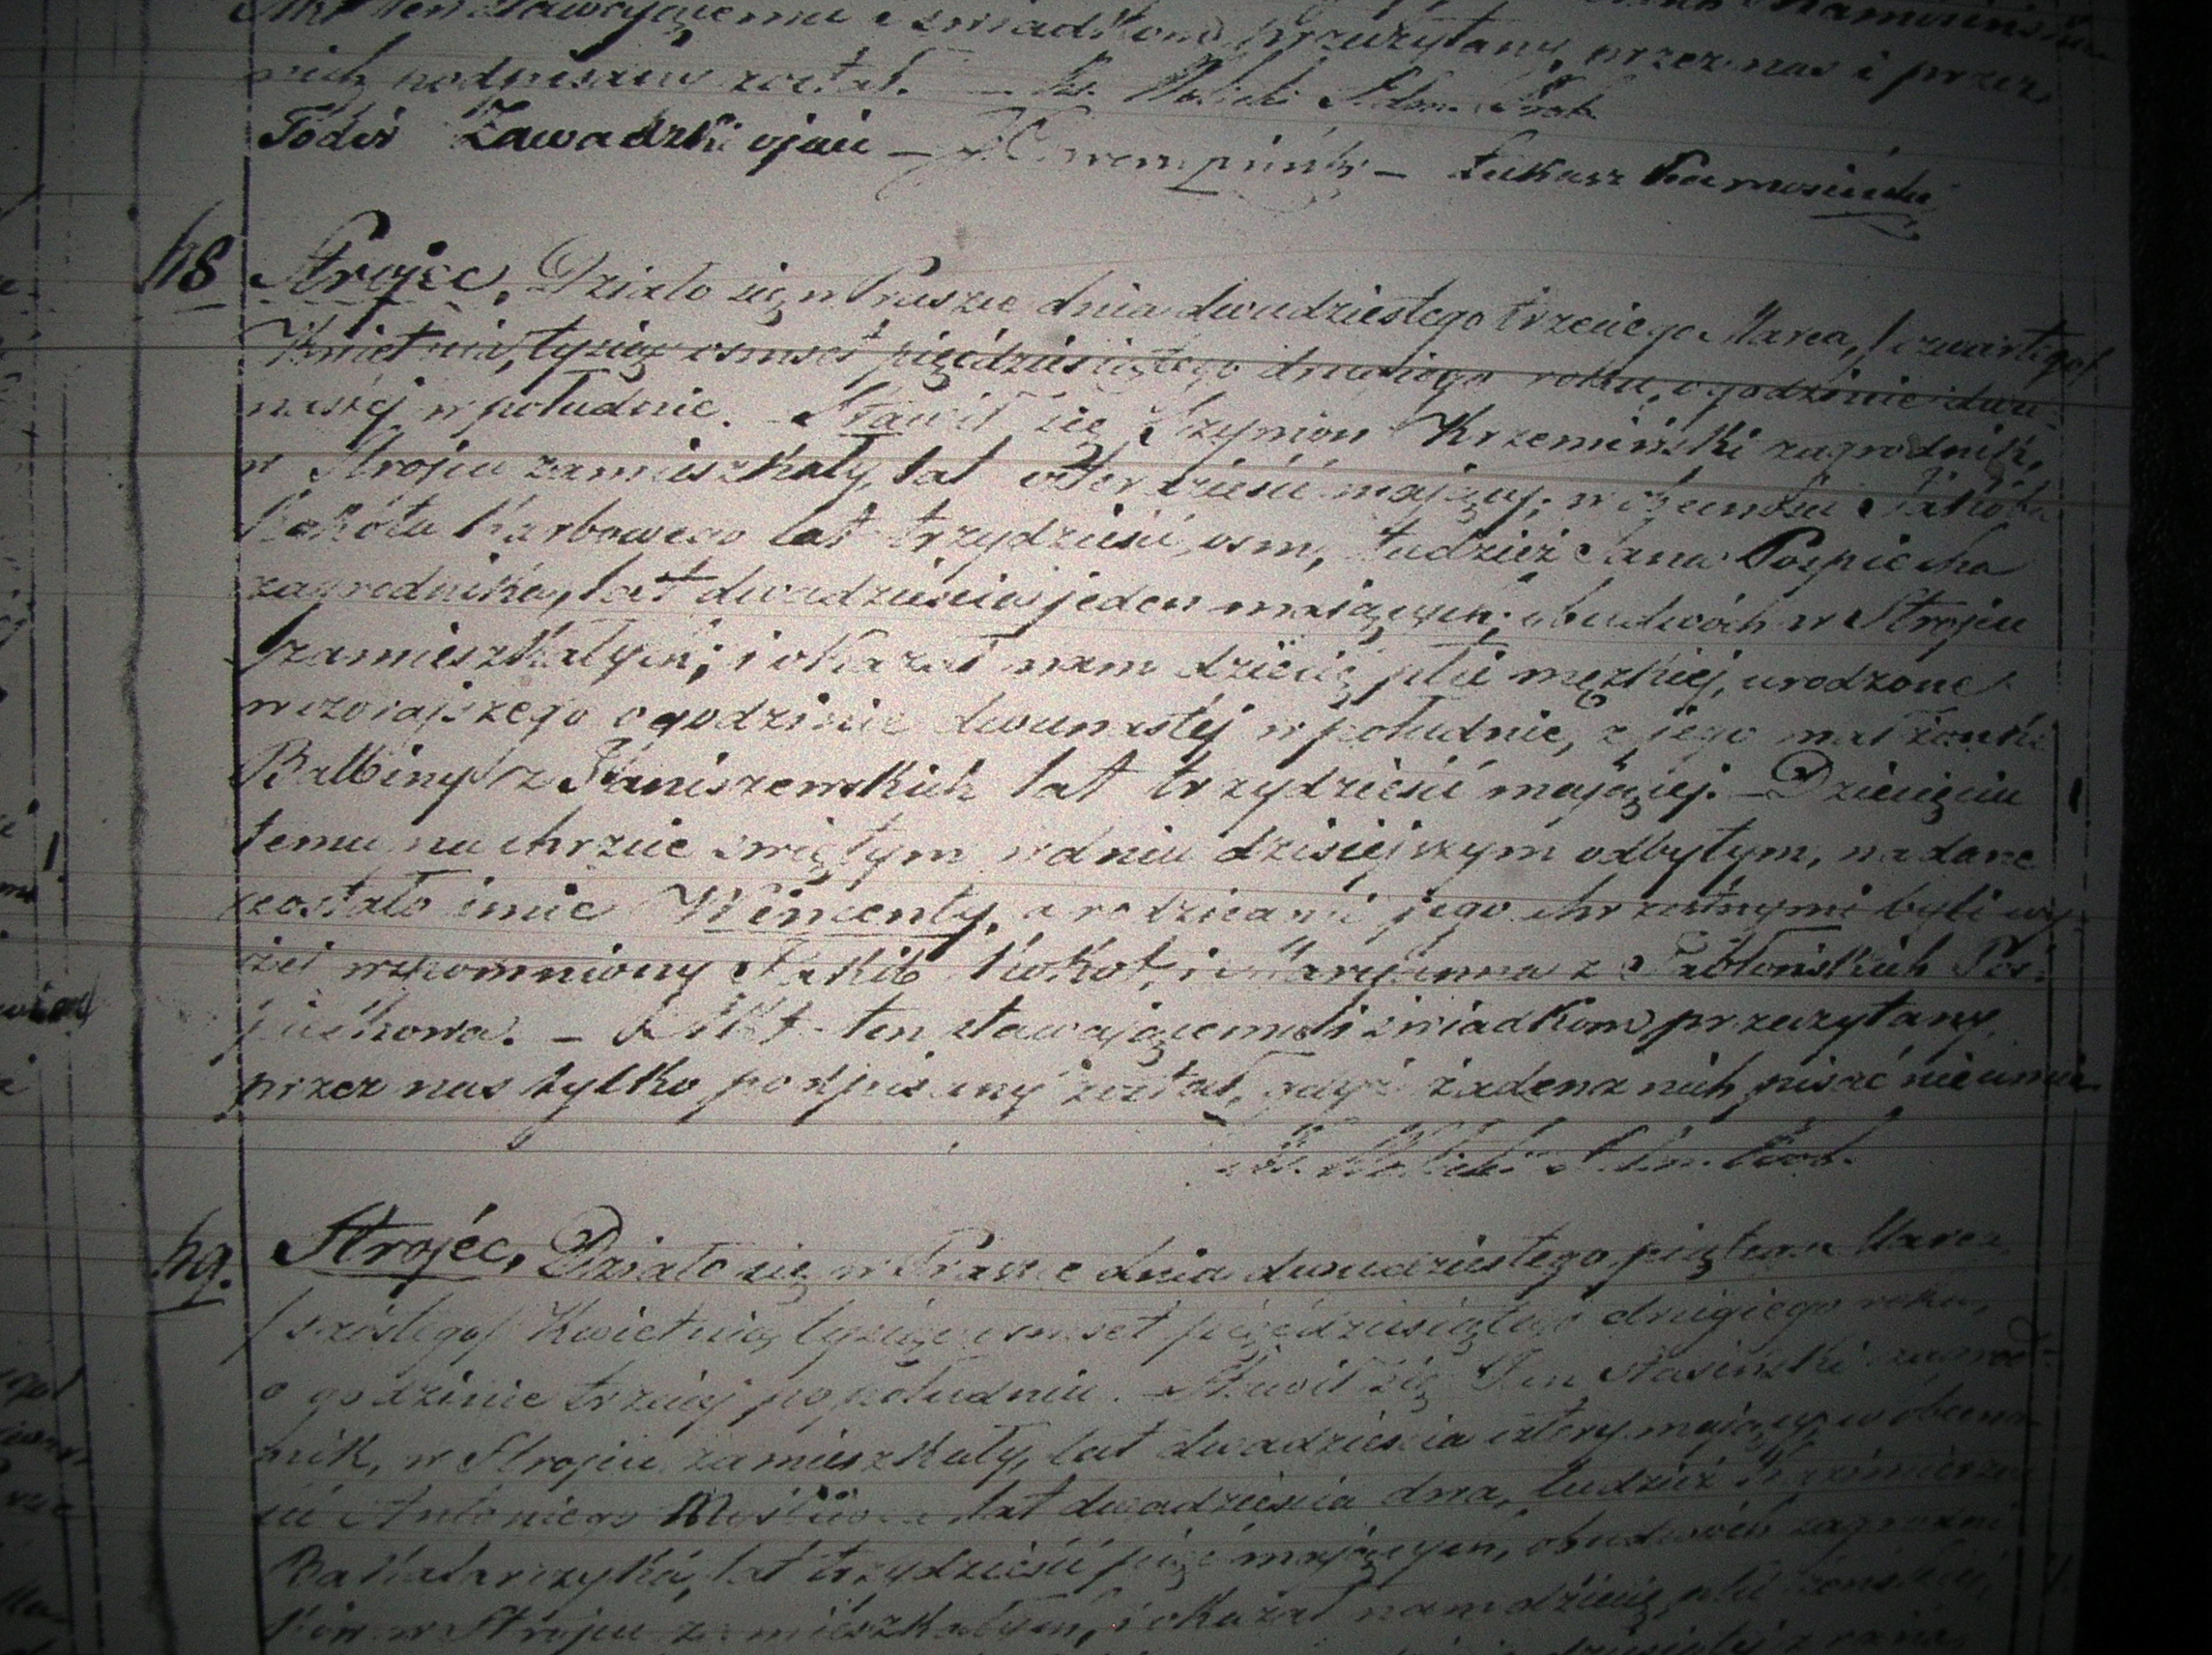 Akt ten stawającemu i świadkom przeczytany, przez nas i przez
nich podpisany został. – Ks.
Zawadzki ojciec – – Łukasz
48 Strojec. Działo się w Praszce dnia dwudziestego trzeciego Marca, /czwartego/
Kwietnia, tysiąc osmset pięćdziesiątego drugiego roku, o godzinie dwu-
nastéj w południe. – Stawił się Szymon Krzemiński zagrodnik,
w Strojcu zamieszkały, lat czterdzieści mający; w obecności Jakóba
karbowego lat trzydzieści osm, tudzież Jana Pośpiecha
zagrodnika, lat dwadzieścia jeden mających; obudwóch w Strojcu
zamieszkałych; i okazał nam dziécię płci męzkiéj, urodzone
wczorajszego o godzinie dwunastéj w południe, z jego małżonki
Balbiny z Staniszewskich lat trzydzieści mającéj. – Dziecięciu
temu na chrzcie świętym w dniu dzisiejszym odbytym, nadane
zostało imie Wincenty, a rodzicami jego chrzestnymi byli wy-
żéj wspomniony Jakób i Maryanna z Jabłońskich Poś-
piechowa. – Akt ten stawającemu i świadkom przeczytany
przez nas tylko podpisany został, gdyż żaden z nich pisać nie umie.
Ks.
49. Strojéc, Działo się w Praszce dnia dwudziestego piątego Marca
/szóstego/ Kwietnia, tysiąc osmset pięćdziesiątego drugiego roku,
o godzinie trzeciéj po południu. – Stawił się Jan Stasiński zagrod-
nik, w Strojcu zamieszkały, lat dwadzieścia cztery mający, w obecno-
ści Antoniego lat dwadzieścia dwa, tudzież Kazimierza
Bakalarczyka, lat trzydzieści pięć mających, obudwóch zagrodni-
ków w Strojcu zamieszkałych, i okazał nam dziécię płci żeńskiéj